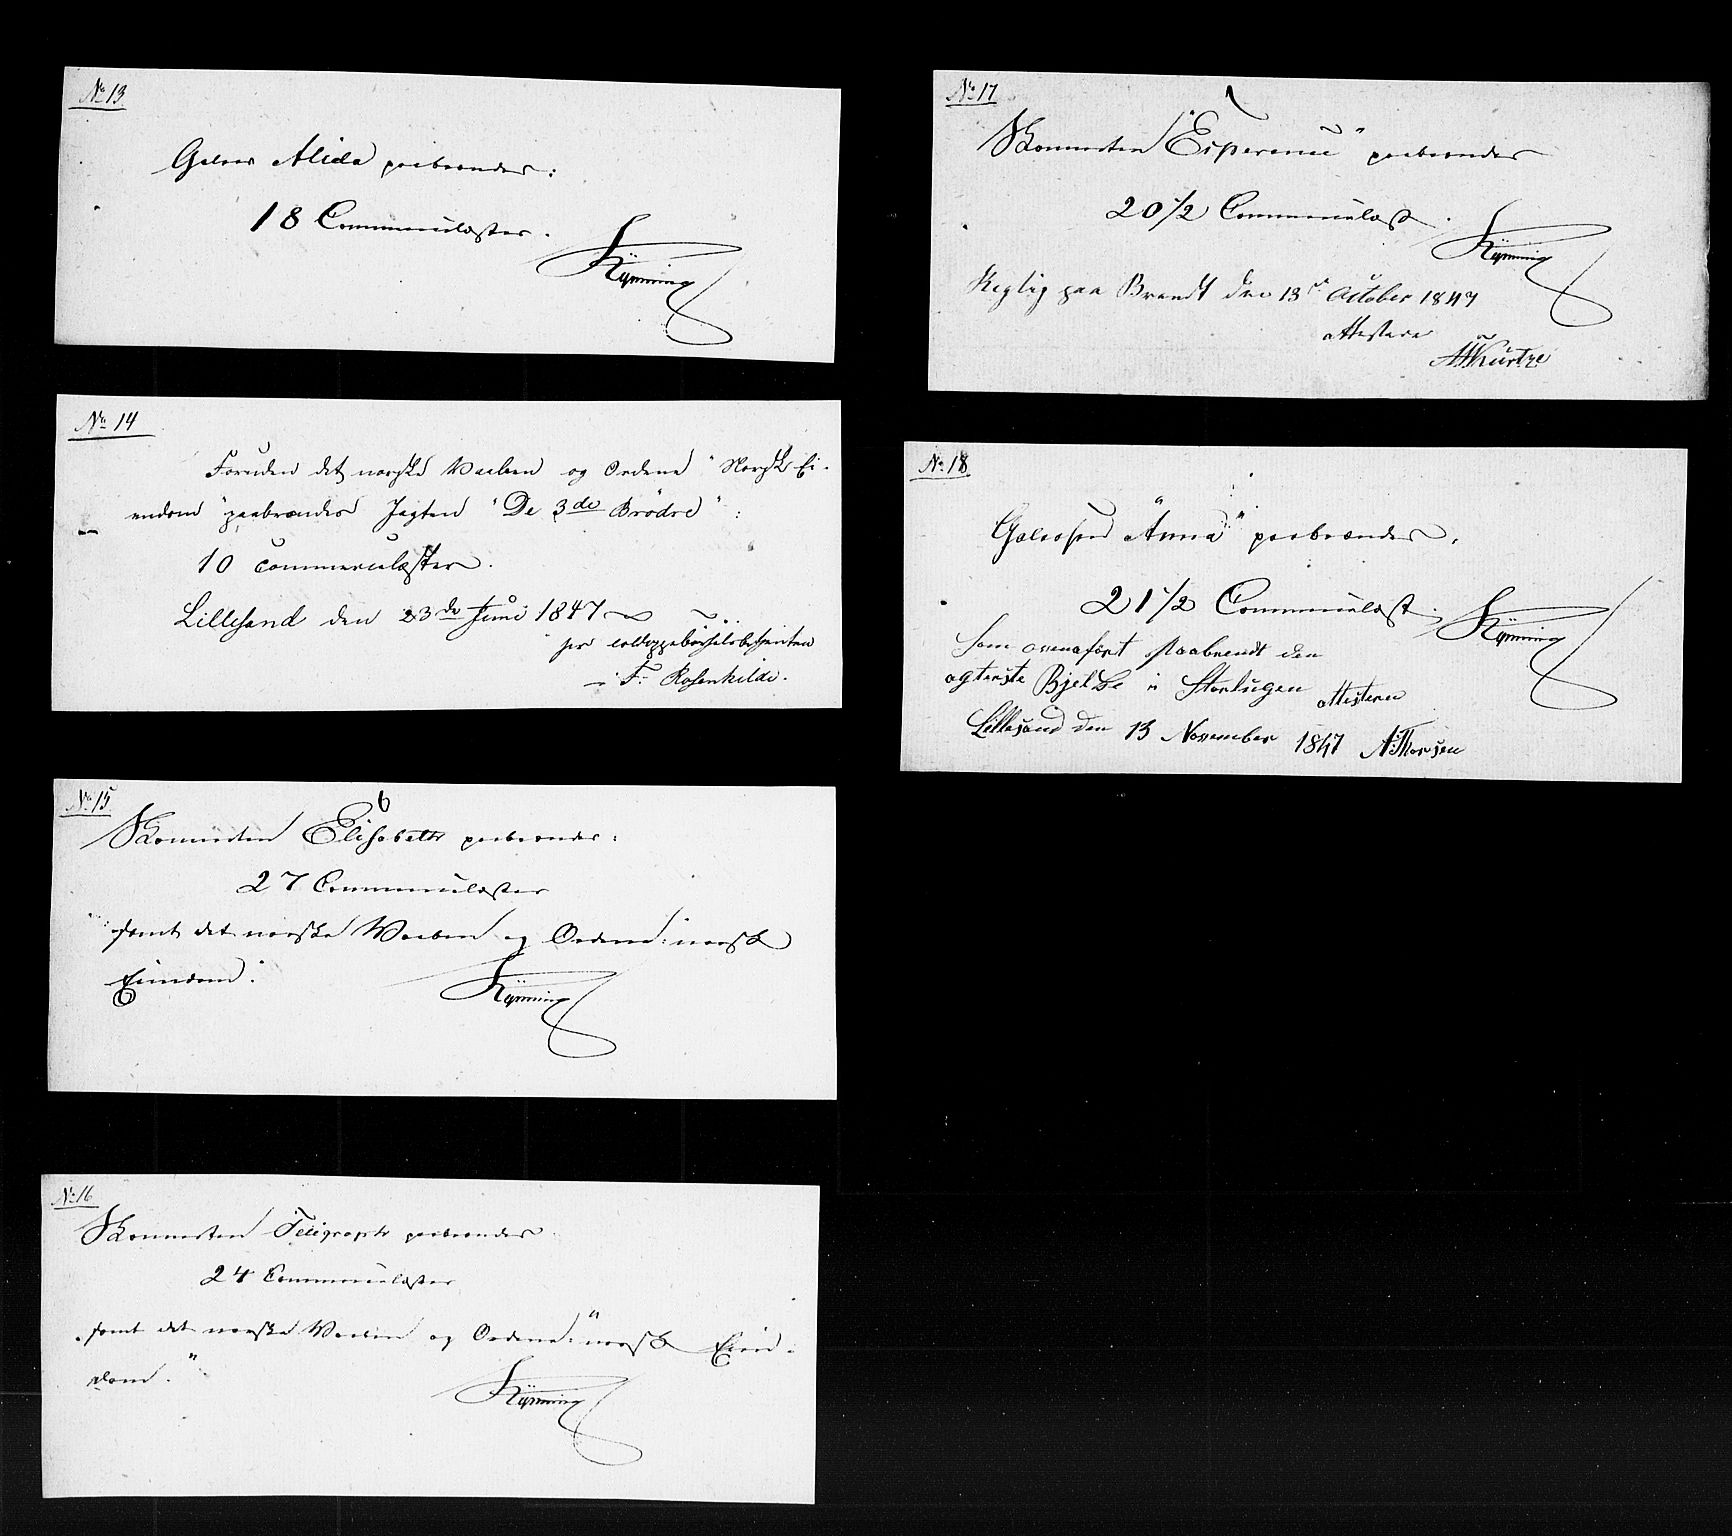 No 13
Galeas Alida paabrændes:
18 Commerculæster.
Kynning
No 14
Foruden det norske Vaaben og Ordene "Norsk Ei-
endom" paabrændes Jagten "De 3de Brödre":
10 Commerculæster.
Lillesand den 23de Juni 1847
F. Rosenkilde.
No 15
Skonnerten Elisabeth paabrændes:
27 Commerculæster
samt det norske Vaaben og Ordene: norsk
Eiendom.
Kynning
No 16
Skonnerten Telegraph paabrændes
24 Commerculæster
samt det norske Vaaben og Ordene: "norsk Eien-
dom."
Kynning
No 17
Skonnerten "Esperance" paabrændes
20 1/2 Commerculæst.
Kynning
Rigtig paa Brændt den 13de October 1847
attestere
No 18
Galeasen "Anna" paabrændes.
21 1/2 Commerculæst.
Kynning
som ovenaført paabrendt den
agterste Bjelke i Storlugen attesteres
Lillesand den 13 November 1847 Thorsen